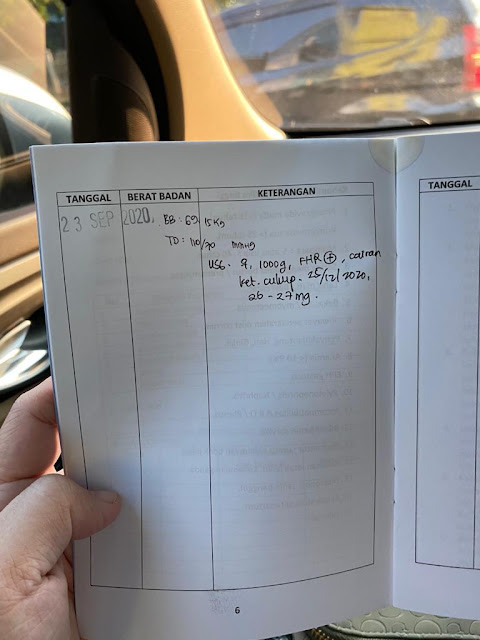 TANGGAL BERAT BADAN KETERANGAN TANGGAL
23 SEP 2020. BB : 69.15Kg
TD : 110/70 mmHg
USG. ♀, 1000g, FHR ⊕, cairan
ket. cukup. 25/12/2020,
26 - 27 mg.
6